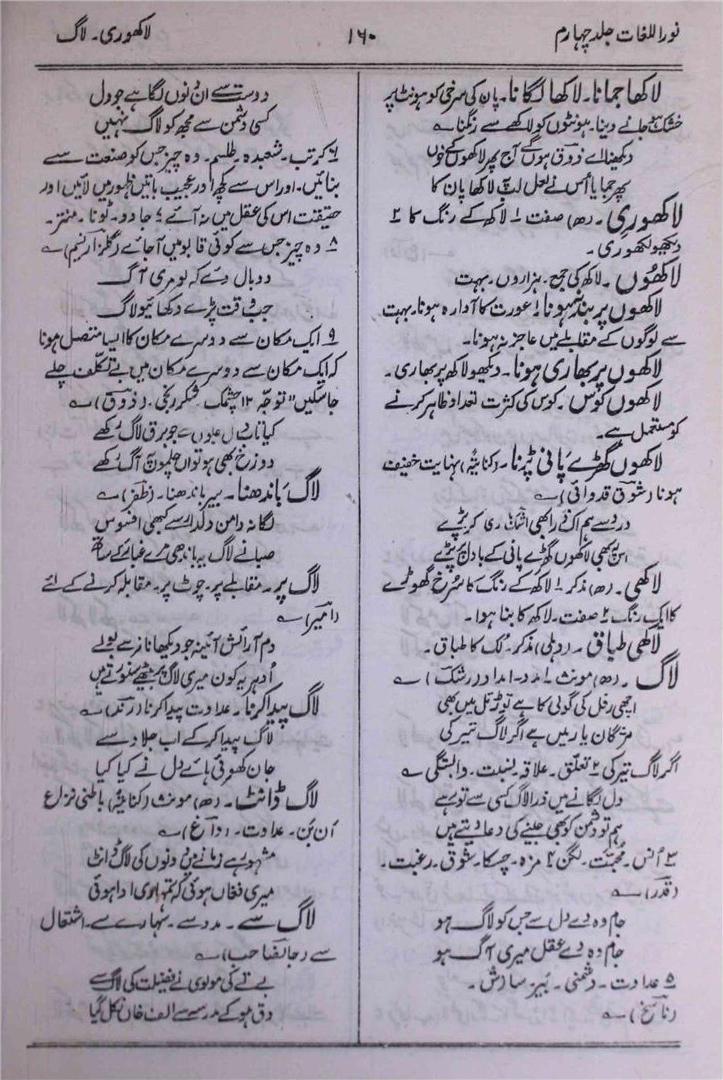 نوراللغات جلد چہارم
۱۶۰
لاکھوری۔ لاگ
لاکھا جمانا۔ لاکھا لگانا۔ پان کی سرخی کو ہونٹ پر
خشک ہو جانے دینا۔ ہونٹوں کو لاکھے سے رنگنا ؎
دیکھنا اے ذوق ہوں گے آج پھر لاکھوں کے خوں
پھر جمایا اُس نے لعل لب پہ لاکھا پان کا
لاکھوری۔ (ھ) صفت ۱ لاکھ کے رنگ کا ۲
دیکھو لکھوری۔
لاکھوں۔ لاکھ کی جمع۔ ہزاروں۔ بہت
لاکھوں پر بند ہونا ۱ عورت کا آوارہ ہونا۔ بہت
سے لوگوں کے مقابلے میں عاجز نہ ہونا۔
لاکھوں پر بھاری ہونا۔ دیکھو لاکھ پر بھاری۔
لاکھوں کوس۔ کوس کی کثرت تعداد ظاہر کرنے
کو مستعمل ہے۔
لاکھوں گھڑے پانی پڑنا۔ (کنایۃً) نہایت خفیف
ہونا (شوق قدوائی) ؎
درد سے ہم اک ذرا کبھی اشکباری کر پڑے
اس پہ بھی لاکھوں گھڑے پانی کے بادل پر پڑے
لاکھی۔ (ھ) مذکر ۱ لاکھ کے رنگ کا سُرخ گھوڑے
کا ایک رنگ ۲ صفت۔ لاکھ کا بنا ہوا۔
لاکھی طباق۔ (دہلی) مذکر۔ لک کا طباق۔
لاگ۔ (ھ) مونث ۱ مدد۔ امداد (رشک) ؎
اچھی رفل کی گولی کا ہے توڑ تل میں بھی
مژگان یار میں ہے اگر لاگ تیر کی
اگر لاگ تیر کی ۲ تعلق۔ علاقہ۔ نسبت۔ وابستگی ؎
دل لگانے میں ذرا لاگ کسی سے تو رہے
ہم تو دشمن کو بھی جینے کی دعا دیتے ہیں
۳ اُنس۔ محبت۔ لگن ۴ مزہ۔ چسکا۔ شوق۔ رغبت۔
(قدر) ؎
جام وہ دے دل سے جس کو لاگ ہو
جام وہ دے عقل میری آگ ہو
۵ عداوت۔ دشمنی۔ بَیر۔ سازش۔
(ناسخ) ؎
دوست سے ان دنوں لگا ہے جو دل
کسی دشمن سے مجھ کو لاگ نہیں
۶ کرتب۔ شعبدہ۔ طلسم۔ وہ چیز جس کو صنعت سے
بنائیں۔ اور اس سے کچھ اور عجیب باتیں ظہور میں لائیں اور
حقیقت اس کی عقل میں نہ آئے ۷ جادو۔ ٹونا۔ منتر۔
۸ وہ چیز جس سے کوئی قابو میں آجائے (گلزار نسیم) ؎
دو بال دے کہ لو مری آگ
جب وقت پڑے دکھائیو لاگ
۹ ایک مکان سے دوسرے مکان کا ایسا متصل ہونا
کہ ایک مکان سے دوسرے مکان میں بے تکلف چلے
جا سکیں ۱۱ توجہ ۱۲ چشمک شکر رنجی۔ (ذوق) ؎
کیا تاب دل جلوں سے جو برق لاگ رکھے
دوزخ بھی ہو تو اں چلپو پہ آگ رکھے
لاگ باندھنا۔ بیر باندھنا۔ (ظفر) ؎
لگا نہ دامن دلدار سے کبھی افسوس
صبا نے لاگ یہ باندھی مرے غبار کے ساتھ
لاگ پر۔ مقابلے پر۔ چوٹ پر۔ مقابلہ کرنے کے لئے
(امیر) ؎
دم آرائش آئینہ جو دیکھا ناز سے بولے
اُدہر یہ کون میری لاگ پر بیٹھے سنورتے ہیں
لاگ پیدا کرنا۔ عداوت پیدا کرنا (رند) ؎
لاگ پیدا کر کے اب جلاد سے
جان کھوئی ہائے دل نے کیا کیا
لاگ ڈانٹ۔ (ھ) مونث (کنایۃً) باطنی نزاع
اَن بَن۔ عداوت۔ (داغ) ؎
مشہور ہے زمانے میں دونوں کی لاگ ڈانٹ
میری فغاں ہوئی کہ تمہاری ادا ہوئی
لاگ سے۔ مدد سے۔ سہارے سے۔ اشتعال
سے (جانصاحب) ؎
بے تے کی مولوی نے فضیلت کی لاگ سے
دق ہو کے مدرسہ سے الف خاں نکل گیا